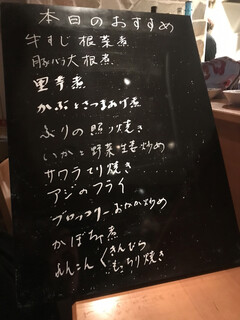 本日のおすすめ
牛すじ根菜煮
豚バラ大根煮
里芋煮
かぶとさつまあげ煮
ぶりの照り焼き
いかと野菜生姜炒め
サワラてり焼き
アジのフライ
ブロッコリーおかか炒め
かぼちゃ煮
れんこん〈きんぴら
もっちり焼き